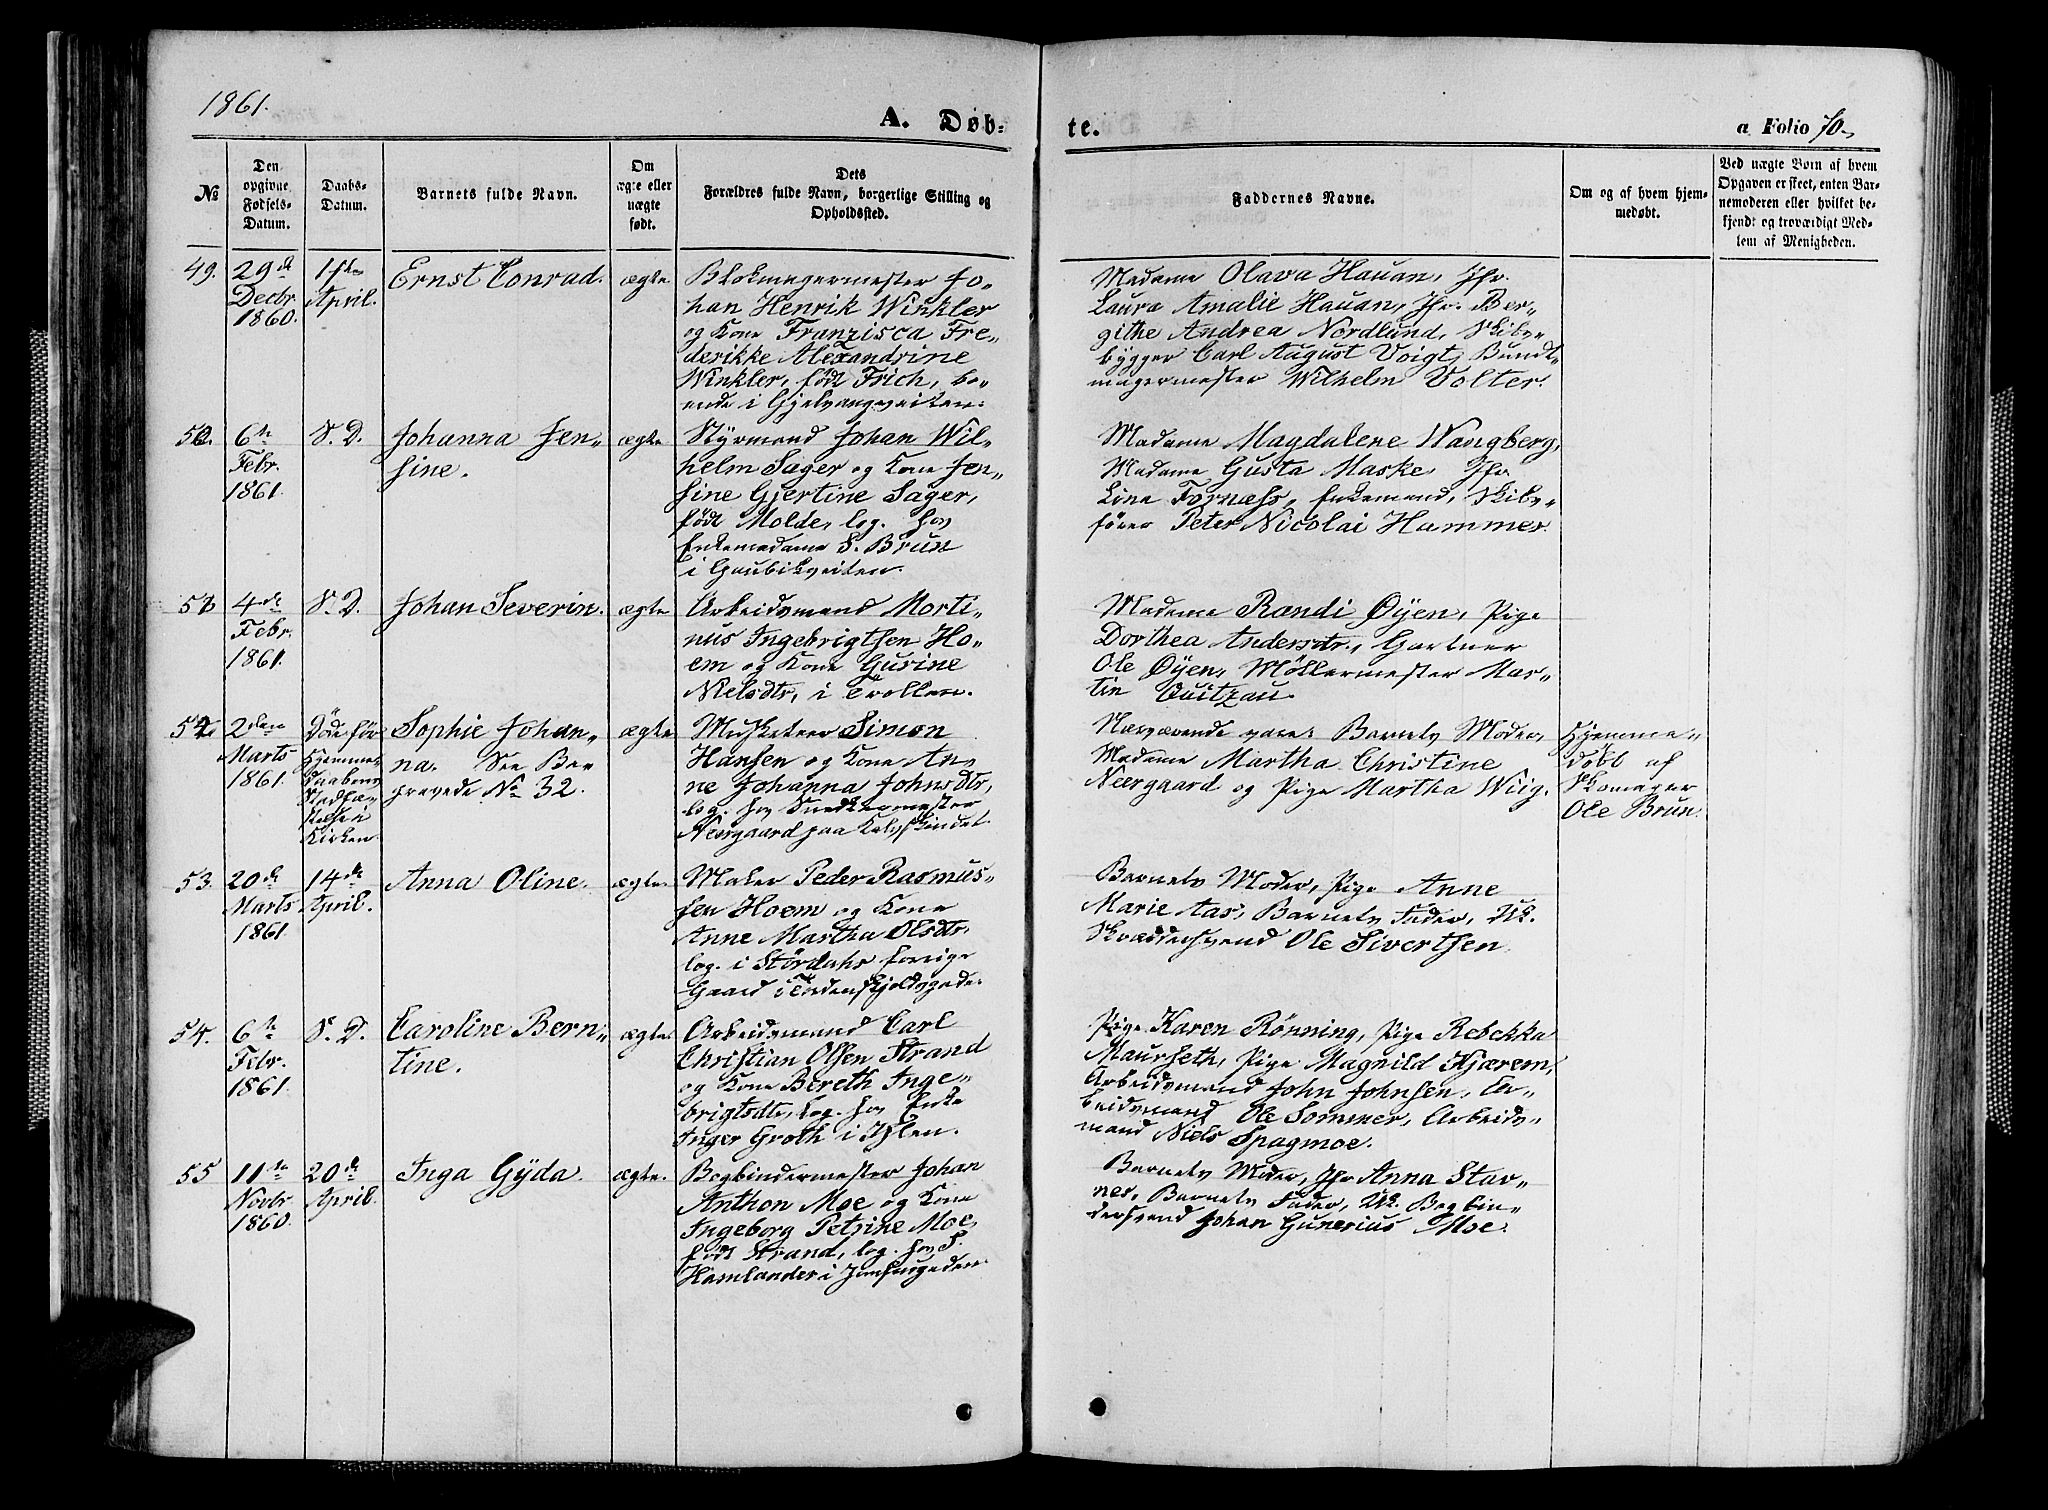 1861.
A. Døb-
te.
a Folio 70.
№
Den opgivne Fødsels-Datum.
Daabs-Datum.
Barnets fulde Navn.
Om ægte eller uægte født.
Dets Forældres fulde Navn, borgerlige Stilling og Opholdssted.
Faddernes Navne.
Om og af hvem hjemmedøbt.
Ved uægte Børn af hvem Opgaven er skeet, enten Barnemoderen eller hvilket bekjendt og troværdigt Medlem af Menigheden.
49.
29de
Decbr
1860.
1ste
April.
Ernst Conrad.
ægte
Blokmagermester Jo-
han Henrik Winkler
og Kone Franzisca Fre-
derikke Alexandrine
Winkler, født Frich, bo-
ende i Gjelvangveiten.
Madame Olava Hauan, Jfr.
Laura Amalie Hauan, Jfr. Ber-
githe Andrea Nordlund, Skibs-
bygger Carl August Voigt, Bundt-
magermester Wilhelm Volter.
50.
6te
Febr.
1861.
S. D.
Johanna Jen-
sine.
ægte
Styrmand Johan Wil-
helm Sager og Kone Jen-
sine Gjertine Sager,
født Molde, log. hos
Enkemadame S. Brun
i Gaubikveiten.
Madame Magdalene Wangberg,
Madame Gusta Maske, Jfr.
Line Fornæss, Enkemand, Skibs-
fører Peter Nicolai Hammer.
51
4de
Febr.
1861.
S. D.
Johan Severin.
ægte
Arbeidsmand Morti-
nus Ingebrigtsen Ho-
em og Kone Gurine
Nielsdtr, i Trollen.
Madame Randi Øyen, Pige
Dorthea Andersdtr., Gartner
Ole Øyen, Møllermester Mar-
tin Quitzau.
52
2den
Marts
1861.
Døde før
Hjemme-
daabens
Stadfæ-
stelse i
Kirken.
Sophie Johan-
na. See Be-
gravede No 32.
ægte
Musketeer Simon
Hansen og Kone An-
ne Johanna Johnsdtr,
log. hos Snedkermester
Neergaard paa Kalvskindet.
Nærværende vare: Barnets Moder,
Madame Martha Christine
Neergaard og Pige Martha Wiig.
Hjemme-
døbt af
Skomager
Ole Brun.
53.
20de
Marts
1861.
14de
April.
Anna Oline.
ægte
Maler Peder Rasmus-
sen Hoem og Kone
Anne Martha Olsdtr.
log. i Stördahs forrige
Gaard i Tordenskjoldsgaden.
Barnets Moder, Pige Anne
Marie Aas, Barnets Fader, Uk.
Skræddersvend Ole Sivertsen.
54.
6te
Febr.
1861.
S. D.
Caroline Bern-
tine.
ægte.
Arbeidsmand Carl
Christian Olsen Strand
og Kone Bereth Inge-
brigtsdtr, log. hos Enke
Inger Groth i Ihlen.
Pige Karen Rönning, Pige Rebekka
Maurseth, Pige Magnild Kjærem,
Arbeidsmand John Johnsen, Ar-
beidsmand Ole Sommer, Arbeids-
mand Niels Spagmoe.
55
11te
Novbr
1860.
20de
April.
Inga Gyda.
ægte.
Bogbindermester Johan
Anthon Moe og Kone
Ingeborg Petrine Moe,
født Strand, log. hos S.
Hamlander i Jomfrugaden.
Barnets Moder, Jfr Anna Stav-
nes, Barnets Fader, Uk. Bogbin-
dersvend Johan Gunerius Moe.